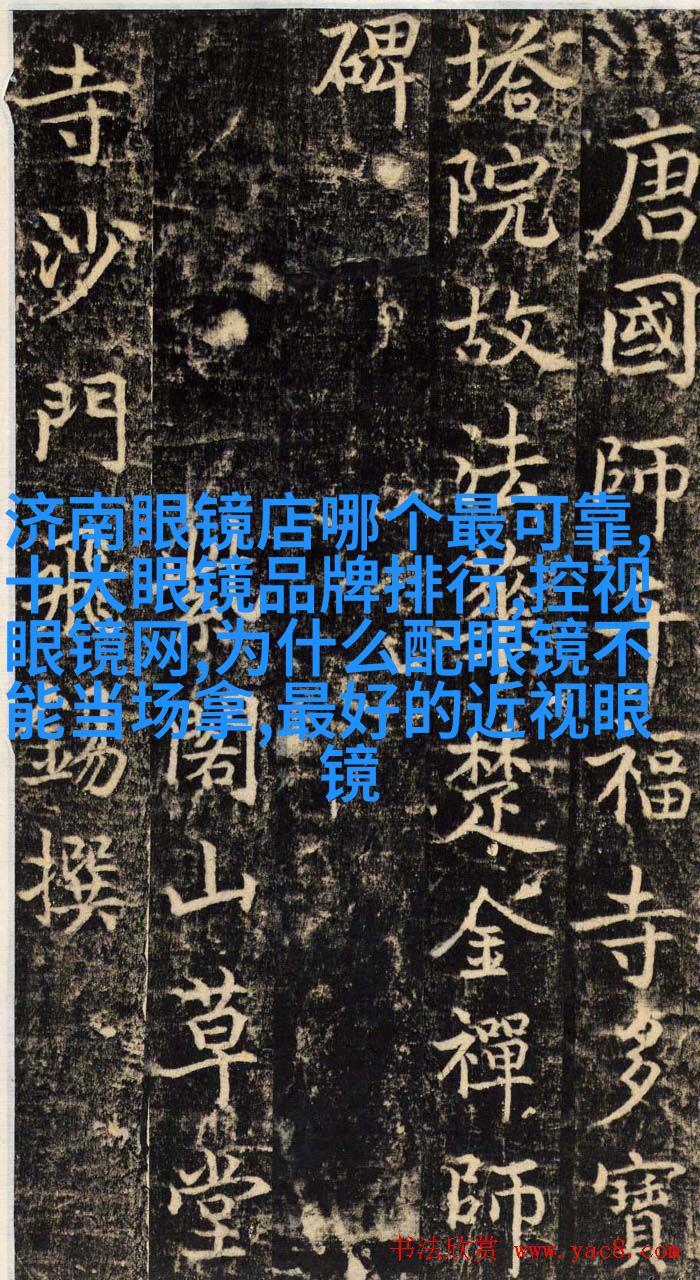 唐國師千福寺多寶
塔院故法華楚金禪師
碑
紫閣山草堂
寺沙門飛錫撰
济南眼镜店哪个最可靠,
十大眼镜品牌排行,控视
眼镜网,为什么配眼镜不
能当场拿,最好的近视眼
镜
书法欣赏 www.yac8.com